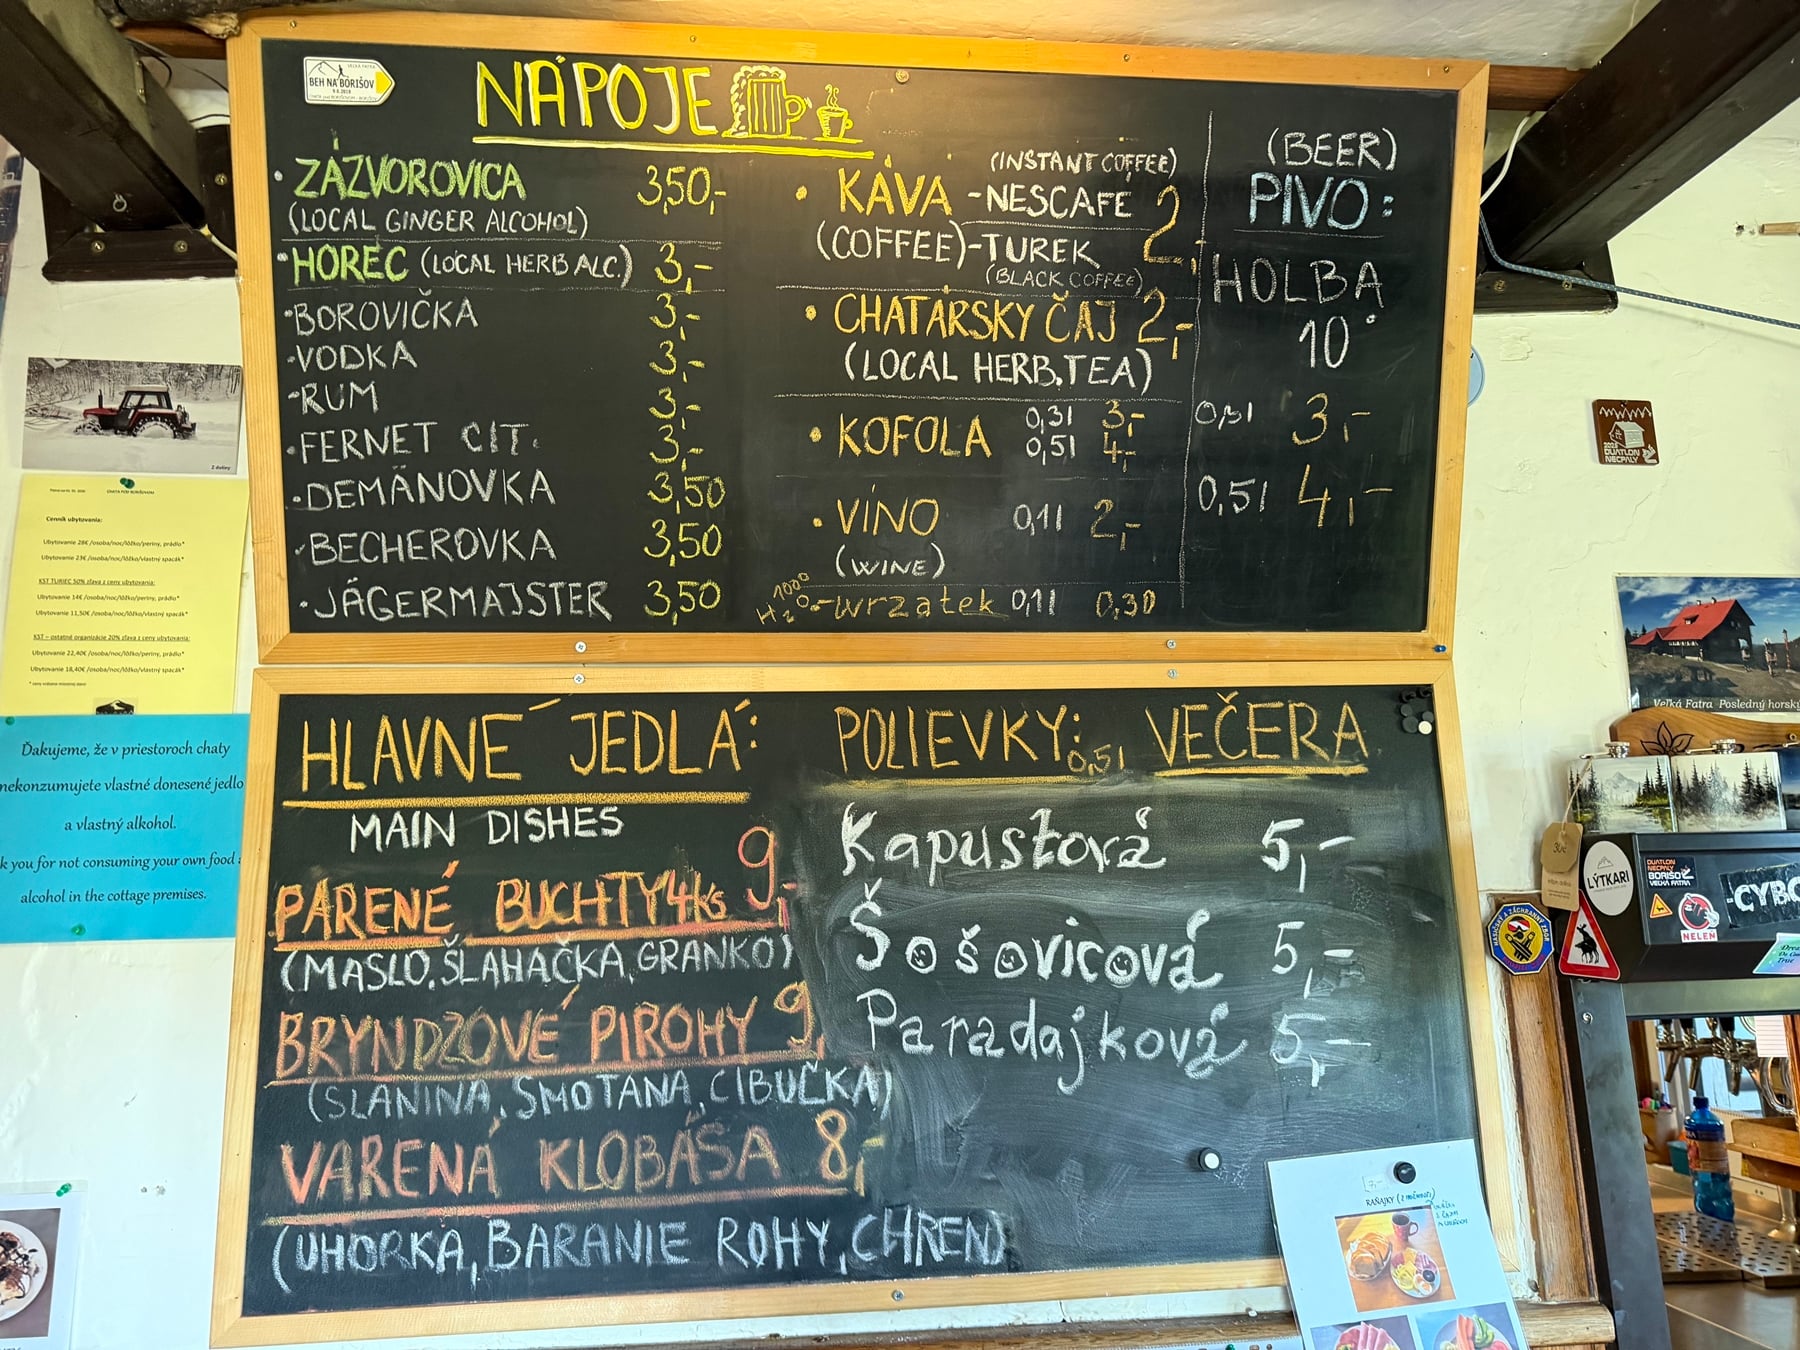 VEĽKÁ FATRA
BEH NA BORIŠOV
NÁPOJE
ZÁZVOROVICA 3,50,-
(LOCAL GINGER ALCOHOL)
HOREC (LOCAL HERB ALC.) 3,-
BOROVIČKA 3,-
VODKA 3,-
RUM 3,-
FERNET CIT. 3,-
DEMÄNOVKA 3,50
BECHEROVKA 3,50
JÄGERMAJSTER 3,50
(INSTANT COFFEE)
KÁVA -NESCAFÉ 2,-
(COFFEE)-TUREK
(BLACK COFFEE)
CHATÁRSKY ČAJ 2,-
(LOCAL HERB.TEA)
KOFOLA 0,3l 3,-
0,5l 4,-
VÍNO 0,1l 2,-
(WINE)
100°
H2O.-wrzatek 0,1l 0,30
(BEER)
PIVO:
HOLBA
10°
0,3l 3,-
0,5l 4,-
HLAVNÉ JEDLÁ:
MAIN DISHES
PARENÉ BUCHTY 4ks 9,-
(MASLO, ŠLAHAČKA, GRANKO)
BRYNDZOVÉ PIROHY 9,
(SLANINA, SMOTANA, CIBUČKA)
VARENÁ KLOBÁSA 8,-
(UHORKA, BARANIE ROHY, CHREN)
POLIEVKY: 0,5l VEČERA
Kapustová 5,-
Šošovicová 5,-
Paradajková 5,-
Z doliny
CHATA POD BORIŠOVOM
Cenník ubytovania:
Ubytovanie 28€ /osoba/noc/lôžko/periny, prádlo*
Ubytovanie 23€ /osoba/noc/lôžko/vlastný spacák*
KST TURIEC 50% zľava z ceny ubytovania:
Ubytovanie 14€ /osoba/noc/lôžko/periny, prádlo*
Ubytovanie 11,50€ /osoba/noc/lôžko/vlastný spacák*
KST – ostatné organizácie 20% zľava z ceny ubytovania:
Ubytovanie 22,40€ /osoba/noc/lôžko/periny, prádlo*
Ubytovanie 18,40€ /osoba/noc/lôžko/vlastný spacák*
Ďakujeme, že v priestoroch chaty
nekonzumujete vlastné donesené jedlo
a vlastný alkohol.
k you for not consuming your own food
alcohol in the cottage premises.
DUATLON
NECPALY
Veľká Fatra Posledný horský
LÝTKARI
DUATLON
NECPALY
BORIŠOV
VEĽKÁ FATRA
NELEN
CYBO
HASIČSKÝ A ZÁCHRANNÝ ZBOR
True
RAŇAJKY (Z MOŽNOSTÍ)